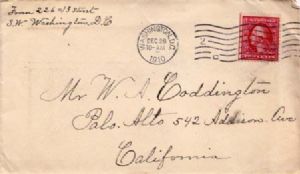 From 226 1/3 Street
S.W. Washington, D.C.
WASHINGTON, D.C.
DEC 28
10-AM
1910
Mr. W. A. Coddington
Palo Alto 542 Addison Ave
California